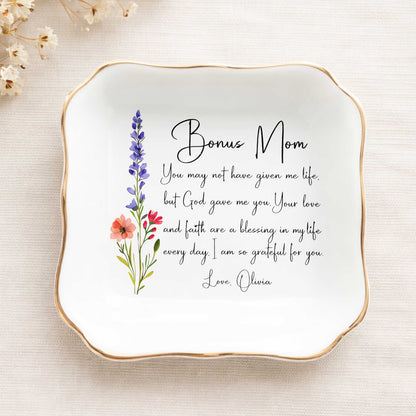 Bonus Mom
You may not have given me life,
but God gave me you. Your love
and faith are a blessing in my life
every day. I am so grateful for you.
Love, Olivia